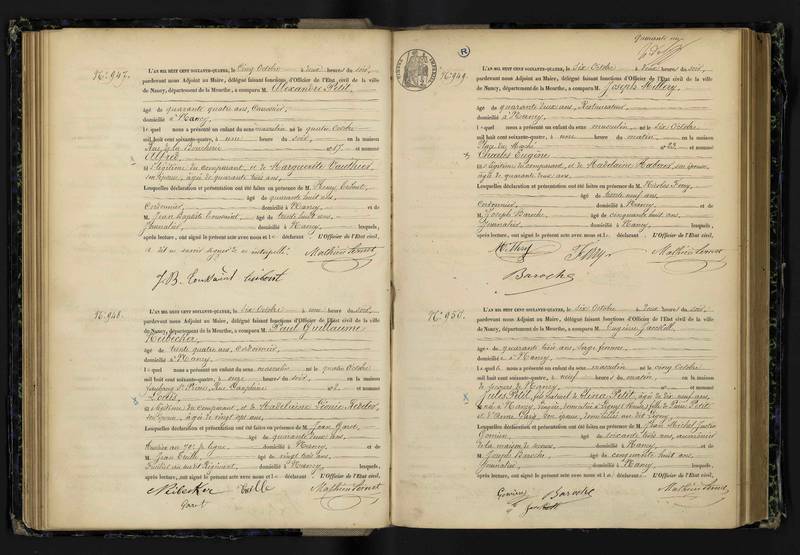 N.° 947.
L'AN MIL HUIT CENT SOIXANTE-QUATRE, le Cinq Octobre à deux heures du soir,
pardevant nous Adjoint au Maire, délégué faisant fonctions d'Officier de l'Etat civil de la ville
de Nancy, département de la Meurthe, a comparu M. Alexandre Petit,
âgé de quarante quatre ans,
domicilié à Nancy
lequel nous a présenté un enfant du sexe masculin né le quatre Octobre
mil huit cent soixante-quatre, à une heure du soir, en la maison
Rue de la Boucherie N.° 17. et nommé
Alfred,
légitime du comparant, et de Marguerite Vauthier,
son épouse, âgée de quarante trois ans,
Lesquelles déclaration et présentation ont été faites en présence de M. Remy
âgé de quarante huit ans,
Cordonnier, domicilié à Nancy et de
M. Jean Baptiste Toussaint, âgé de trente huit ans,
Journalier, domicilié à Nancy lesquels,
après lecture, ont signé le présent acte avec nous et le déclarant L'Officier de l'Etat civil,
J.B. Toussaint
N.° 948.
L'AN MIL HUIT CENT SOIXANTE-QUATRE, le Six Octobre à une heure du soir,
pardevant nous Adjoint au Maire, délégué faisant fonctions d'Officier de l'Etat civil de la ville
de Nancy, département de la Meurthe, a comparu M. Paul Guillaume
Neibecker,
âgé de trente quatre ans, Cordonnier,
domicilié à Nancy
lequel nous a présenté un enfant du sexe masculin né le quatre Octobre
mil huit cent soixante-quatre, à onze heures du soir, en la maison
faubourg St Pierre, Rue N.° et nommé
Louis,
légitime du comparant, et de Madelaine
son épouse, âgée de vingt sept ans,
Lesquelles déclaration et présentation ont été faites en présence de M. Jean Garet,
âgé de quarante deux ans,
ligne domicilié à Nancy et de
M. Jean âgé de vingt trois ans,
Fusilier au susdit Régiment, domicilié à Nancy lesquels,
après lecture, ont signé le présent acte avec nous et le déclarant L'Officier de l'Etat civil,
Neibecker
Garet
Quarante un
R
N.° 949.
L'AN MIL HUIT CENT SOIXANTE-QUATRE, le Six Octobre à deux heures du soir,
pardevant nous Adjoint au Maire, délégué faisant fonctions d'Officier de l'Etat civil de la ville
de Nancy, département de la Meurthe, a comparu M. Joseph Millery,
âgé de quarante deux ans, Restaurateur,
domicilié à Nancy
lequel nous a présenté un enfant du sexe masculin né le six Octobre
mil huit cent soixante-quatre, à une heure du matin, en la maison
Place du Marché N.° 22 et nommé
Charles Eugène,
légitime du comparant, et de Madelaine son épouse,
âgée de quarante deux ans,
Lesquelles déclaration et présentation ont été faites en présence de M. Nicolas Ferry,
âgé de trente neuf ans,
Cordonnier, domicilié à Nancy et de
M. Joseph Baroche, âgé de cinquante huit ans,
Journalier, domicilié à Nancy lesquels,
après lecture, ont signé le présent acte avec nous et le déclarant L'Officier de l'Etat civil,
Millery Ferry
Baroche
N.° 950.
L'AN MIL HUIT CENT SOIXANTE-QUATRE, le six Octobre à deux heures du soir,
pardevant nous Adjoint au Maire, délégué faisant fonctions d'Officier de l'Etat civil de la ville
de Nancy, département de la Meurthe, a comparu M. Eugénie
âgée de quarante trois ans, Sage femme,
domiciliée à Nancy
laquelle nous a présenté un enfant du sexe masculin né le cinq Octobre
mil huit cent soixante-quatre, à neuf heures du matin, en la maison
de secours de Nancy et nommé
Jules Petit, fils naturel de Petit, âgée de dix neuf ans,
née à Nancy, domiciliée à Ligny (Meuse), fille de Petit
Lesquelles déclaration et présentation ont été faites en présence de M. Jean Michel Justin
Gomien, âgé de soixante trois ans,
de la maison de secours, domicilié à Nancy et de
M. Joseph Baroche, âgé de cinquante huit ans,
Journalier, domicilié à Nancy lesquels,
après lecture, ont signé le présent acte avec nous et la déclarante L'Officier de l'Etat civil,
Gomien Baroche